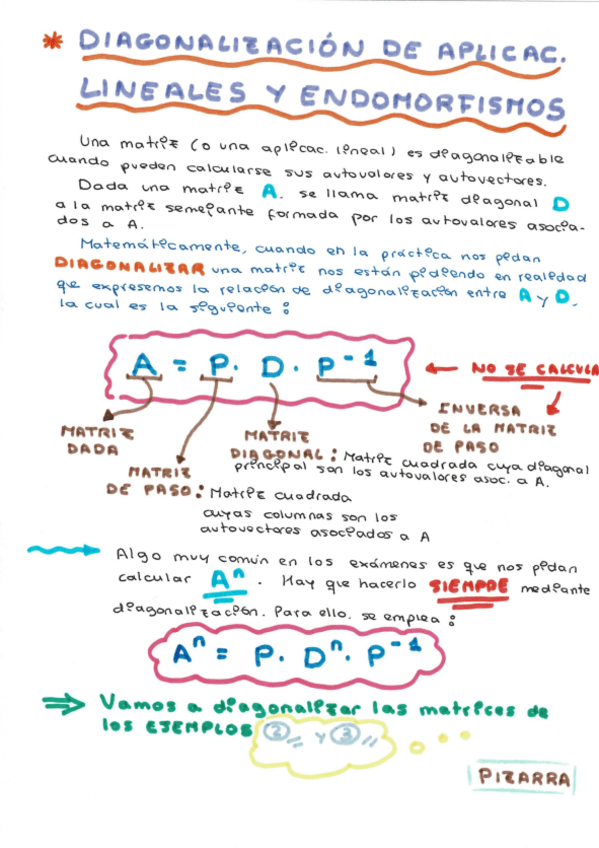 * DIAGONALIZACIÓN DE APLICAC.
LINEALES Y ENDOMORFISMOS
Una matriz (o una aplicac. lineal) es diagonalizable
cuando pueden calcularse sus autovalores y autovectores.
Dada una matriz A. se llama matriz diagonal D
a la matriz semejante formada por los autovalores asocia-
dos a A.
Matemáticamente, cuando en la práctica nos pidan
DIAGONALIZAR una matriz nos están pidiendo en realidad
que expresemos la relación de diagonalización entre A y D.
la cual es la siguiente:
A = P. D. P⁻¹ ← NO SE CALCULA
MATRIZ DADA
MATRIZ DE PASO: Matriz cuadrada
cuyas columnas son los
autovectores asociados a A
MATRIZ
DIAGONAL: Matriz cuadrada cuya diagonal
principal son los autovalores asoc. a A.
INVERSA
DE LA MATRIZ
DE PASO
Algo muy común en los exámenes es que nos pidan
calcular Aⁿ. Hay que hacerlo SIEMPRE mediante
diagonalización. Para ello. se emplea:
Aⁿ = P. Dⁿ. P⁻¹
⇒ Vamos a diagonalizar las matrices de
los EJEMPLOS 2 y 3
PIZARRA